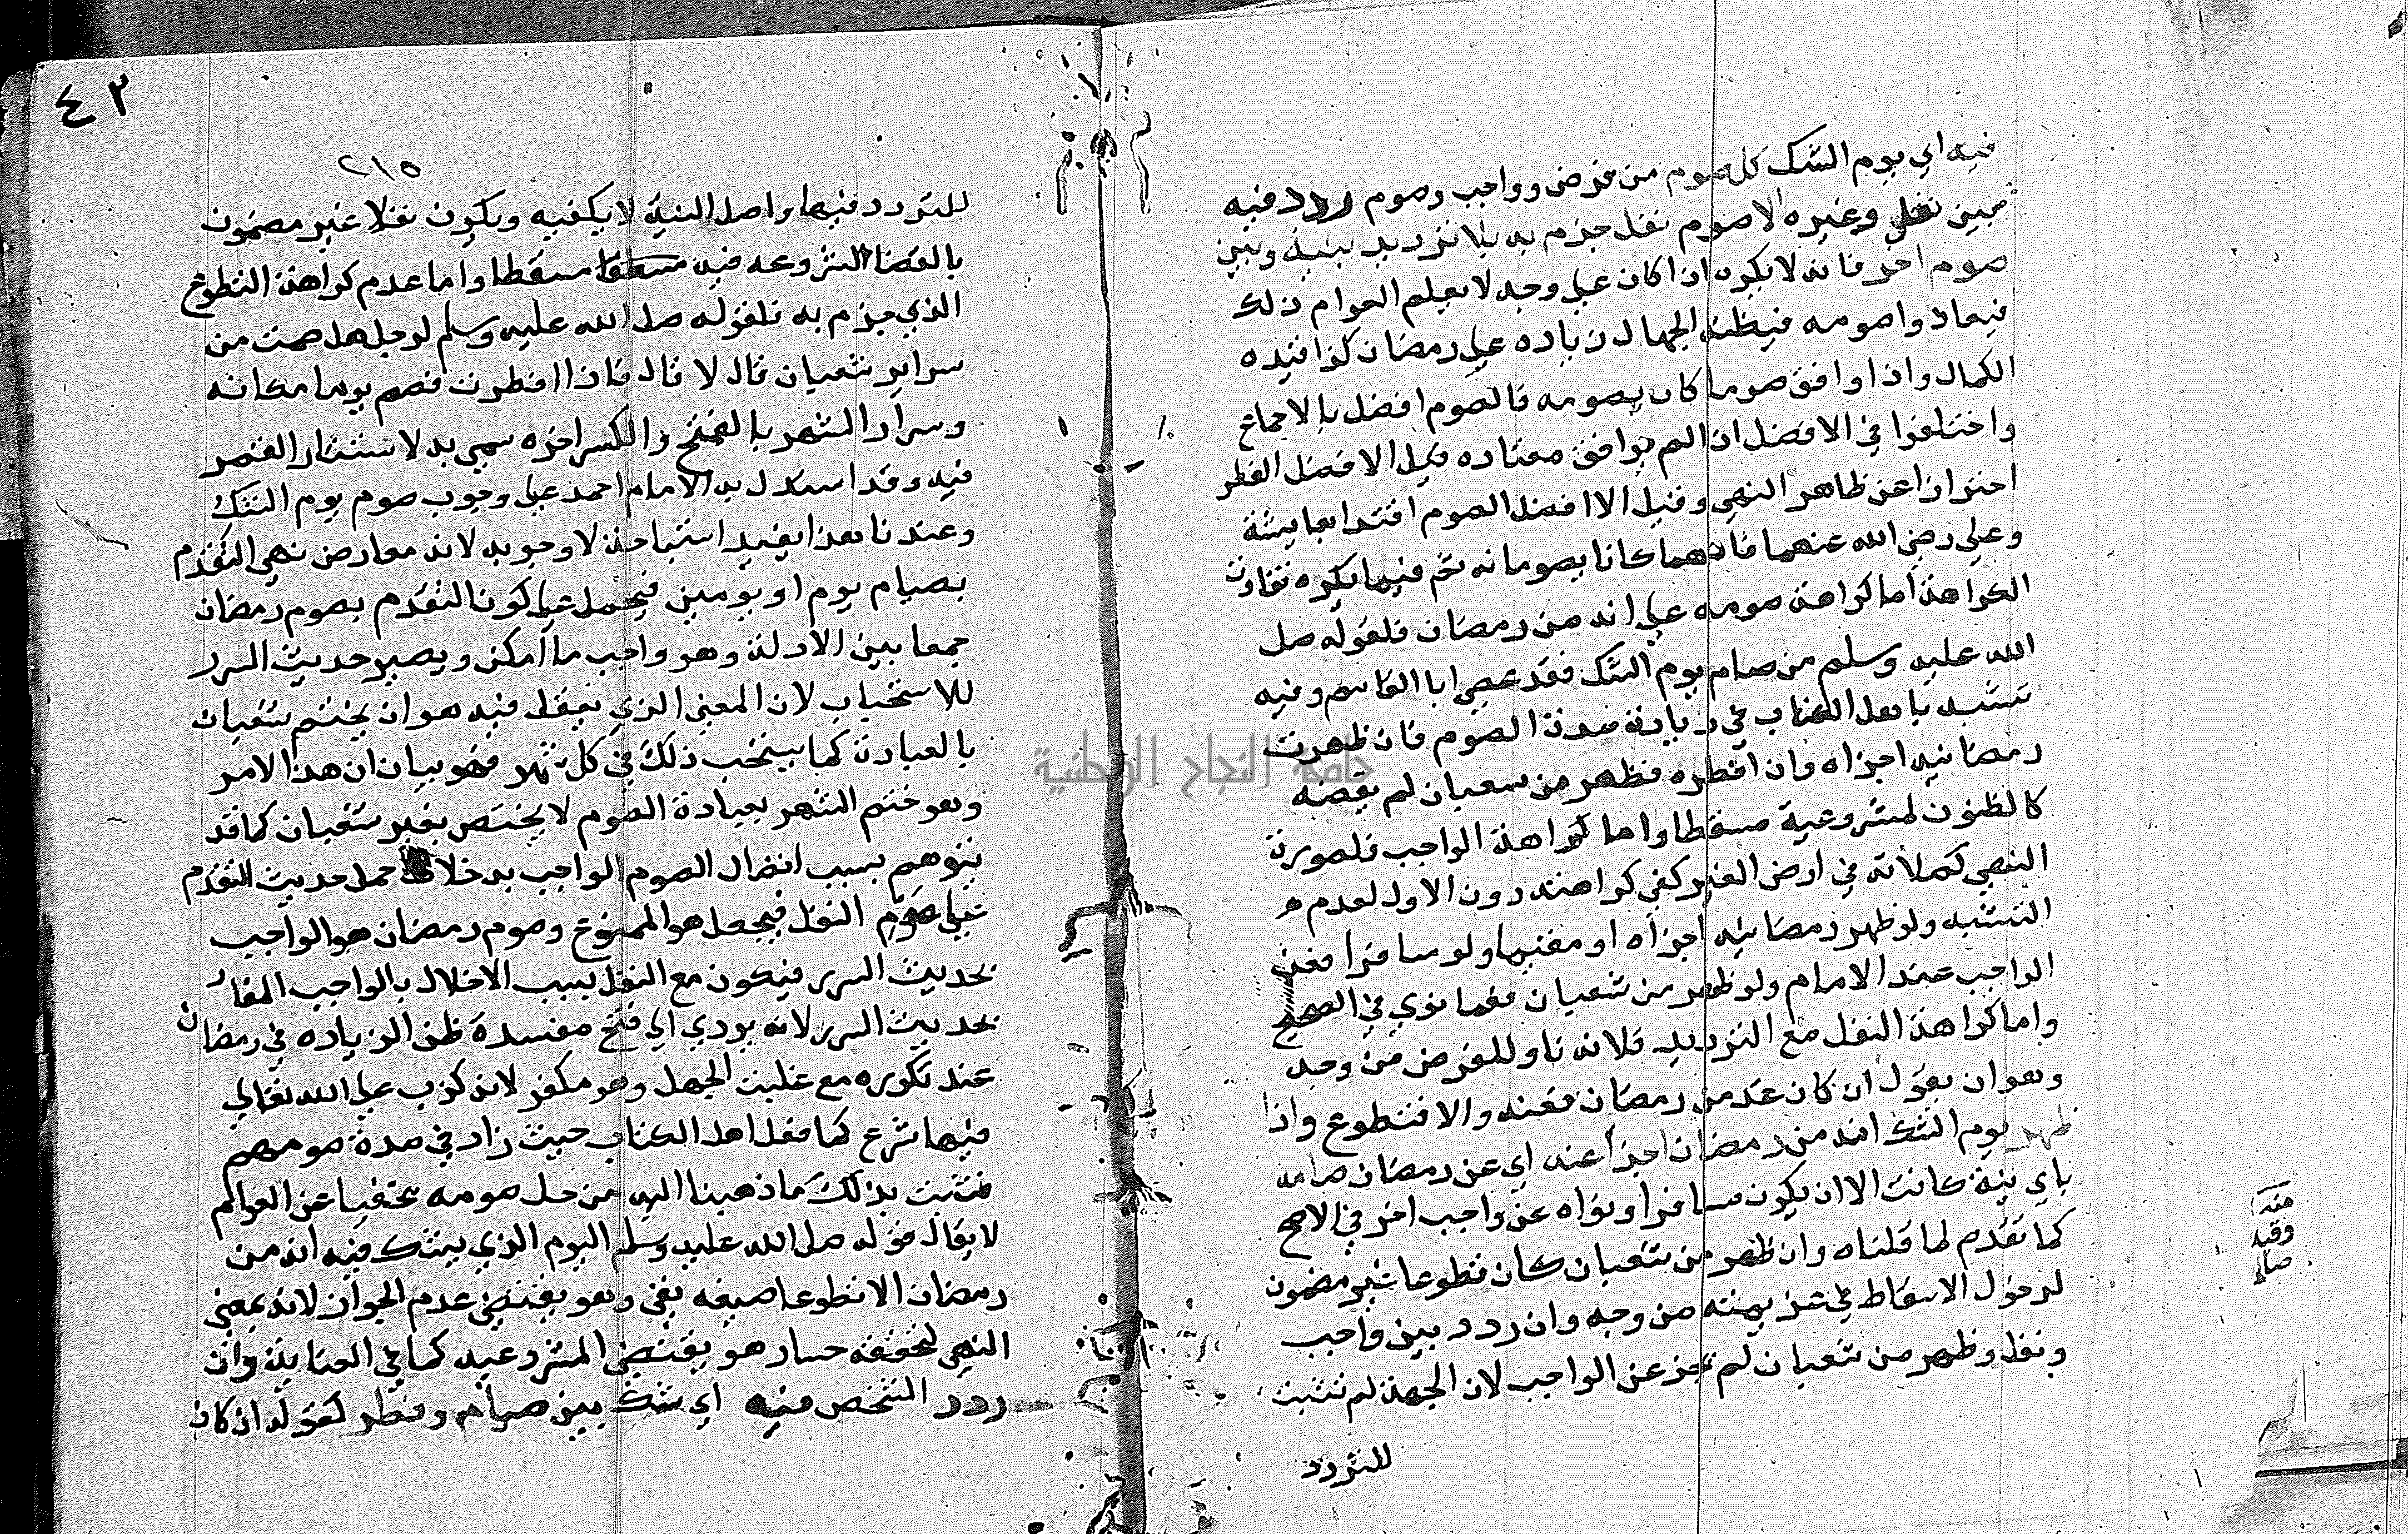 فيه اي يوم الشك كل صوم من فرض وواجب وصوم ردد فيه
بين نفل وغيره لا صوم نفل جزم به بلا ترديد بينه وبين
صوم اخر فانه لا يكره اذا كان علي وجه لا يعلم العوام ذلك
فيعتادوا صومه فيظنه الجهال زياده علي رمضان كذا قيده
الكمال واذا وافق صوما كان يصومه فالصوم افضل بالاجماع
واختلفوا في الافضل ان لم يوافق معتاده قيل الافضل الفطر
احترازا عن ظاهر النهي وقيل الا افضل الصوم اقتدا بعايشة
وعلي رضي الله عنهما فانهما كانا يصومانه ثم فيما يكره تفاوت
الكراهة اما كراهة صومه علي انه من رمضان فلقوله صل
الله عليه وسلم من صام يوم الشك فقد عصي ابا القاسم وفيه
تشبه باهل الكتاب في زيادة مدة الصوم فان ظهرت
رمضانيه اجزاه وان افطره فظهر من شعبان لم يقضه
كالظنون لمشروعية مسقطا واما كراهة الواجب فلصورة
النهي كصلاته في ارض الغير كفي كراهته دون الاول لعدم
التشبه ولو ظهر رمضانيه اجزاه او مقيما ولو سافرا فعن
الواجب عند الامام ولو ظهر من شعبان فعما نوي في الصحيح
واما كراهة النفل مع الترديد فلانه ناو للفرض من وجه
وهو ان يقول ان كان غد من رمضان فعنه والا فتطوع واذا
ظهر يوم الشك انه من رمضان اجزأ عنه اي عن رمضان صامه
باي نية كانت الا ان يكون مسافرا ونواه عن واجب اخر في الاصح
كما تقدم لما قلناه وان ظهر من شعبان كان تطوعا غير مضمون
لدخول الاسقاط في عزيمته من وجه وان ردد بين واجب
ونفل وظهر من شعبان لم يجز عن الواجب لان الجهة لم تثبت
للتردد
منه
وقيد
صام
٤٣
٢١٥
للتردد فيها واصل النية لا يكفيه ويكون نفلا غير مضمون
بالقضا لشروعه فيه مسقطا مسقطا واما عدم كراهة التطوع
الذي جزم به فلقوله صل الله عليه وسلم لرجل هل صمت من
سرار شعبان قال لا قال فاذا افطرت فصم يوما مكانه
وسرار الشهر بالفتح والكسر اخره سمي به لاستتار القمر
فيه وقد استدل به الامام احمد علي وجوب صوم يوم الشك
وعندنا هذا يفيد استحبابه لا وجوبه لانه معارض بنهي التقدم
بصيام يوم او يومين فيحمل علي كون التقدم بصوم رمضان
جمعا بين الادلة وهو واجب ما امكن ويصير حديث السرر
للاستحباب لان المعني الذي يعقل فيه هو ان يختم شعبان
بالعبادة كما يستحب ذلك في كل شهر فهو بيان ان هذا الامر
وهو ختم الشهر بعبادة الصوم لا يختص بغير شعبان كما قد
يتوهم بسبب اتصال الصوم الواجب به خلاف حمل حديث التقدم
علي صوم النفل فيجعل هو الممنوع وصوم رمضان هو الواجب
بحديث السرر فيكون مع النفل بسبب الاخلال بالواجب المفاد
بحديث السرر لانه يودي الي فتح مفسدة ظن الزياده في رمضان
عند تكرره مع غلبة الجهل وهو مكفر لانه كذب علي الله تعالي
فيما شرع كما فعل اهل الكتاب حيث زاد في مدة صومهم
فثبت بذلك ما ذهبنا اليه من حل صومه مختفيا عن العوام
لا يقال قوله صلي الله عليه وسلم اليوم الذي يشك فيه انه من
رمضان الا تطوعا صيغه نفي وهو يقتضي عدم الجواز لانه بمعني
النهي لتحققه حسا وهو يقتضي المشروعيه كما في العناية وان
ردد الشخص فيه اي شك بين صيام وفطر لقوله ان كان
جامعة النجاح الوطنية